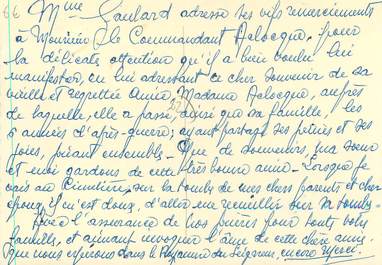 66
Mme Goulard adresse ses vifs remerciements
à Monsieur le Commandant Delocque, pour
la délicate attention qu'il a bien voulu lui
manifester, en lui adressant ce cher souvenir de sa
vieille et regrettée Amie, Madame Delocque, auprès
de laquelle, elle a passé, ainsi que sa famille, les
années d'après-guerre; ayant partagé ses peines et ses
joies, ensemble. Que de souvenirs, ma sœur
et moi gardons de cette très bonne amie. Lorsque je
vais au Cimetière, sur la tombe de mes chers parents et cher
époux, il m'est doux, d'aller me recueillir sur sa tombe.
l'assurance de nos prières pour toute votre
famille, et aimant invoquer l'âme de cette chère amie
que nous espérons dans le Royaume du Seigneur, encore Merci.